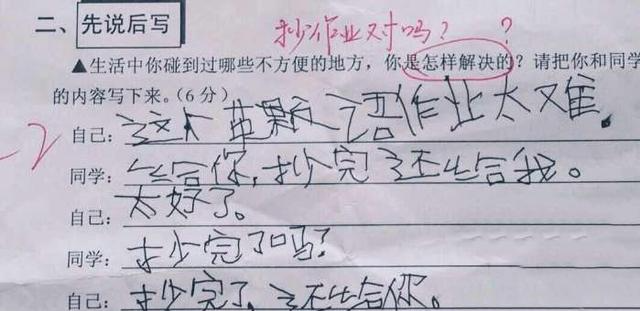 抄作业对吗？ ？
二、先说后写
▲生活中你碰到过哪些不方便的地方，你是怎样解决的？请把你和同学
的内容写下来。（6分）
-2
自己：这个英语作业太难。
同学：给你，抄完还给我。
自己：太好了。
同学：抄完了吗？
自己：抄完了，还给你。